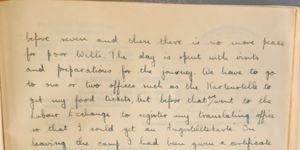 before seven and then there is no more peace
for poor Willi. The day is spent with visits
and preparations for the journey. We have to go
to one or two offices such as the Kartenstelle to
get my food tickets, but before that we went to the
Labour Exchange to register my translating office
so that I could get an Angestelltenkarte. On
leaving the camp I had been given a certificate